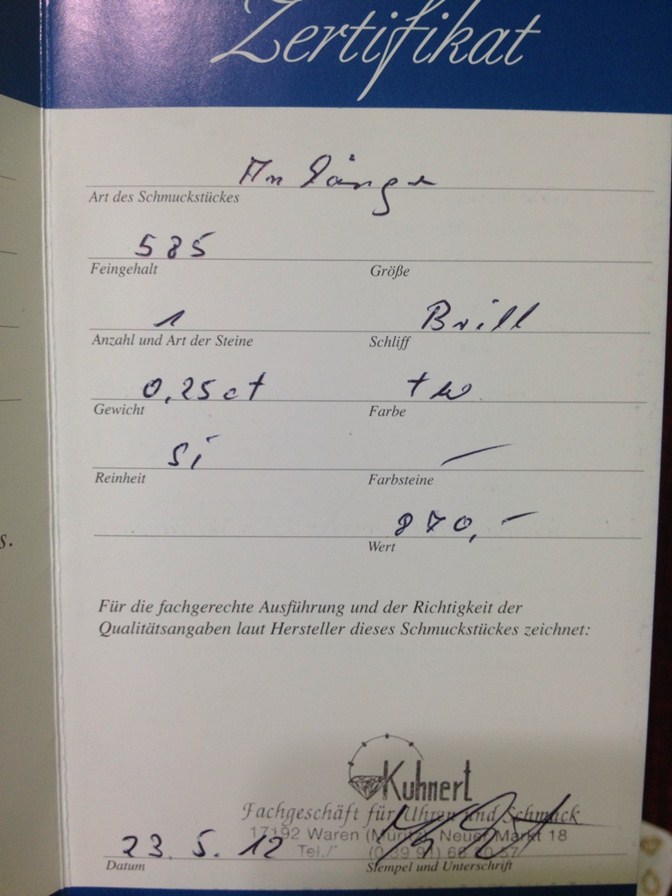 Zertifikat
Anhänger
Art des Schmuckstückes
585
Feingehalt Größe
1 Brill
Anzahl und Art der Steine Schliff
0,25 ct tw
Gewicht Farbe
Si
Reinheit Farbsteine
870,-
Wert
s.
Für die fachgerechte Ausführung und der Richtigkeit der
Qualitätsangaben laut Hersteller dieses Schmuckstückes zeichnet:
Kuhnert
Fachgeschäft für Uhren und Schmuck
17192 Waren (Müritz), Neuer Markt 18
23. 5. 12 Tel./ (0 39 91)
Datum Stempel und Unterschrift